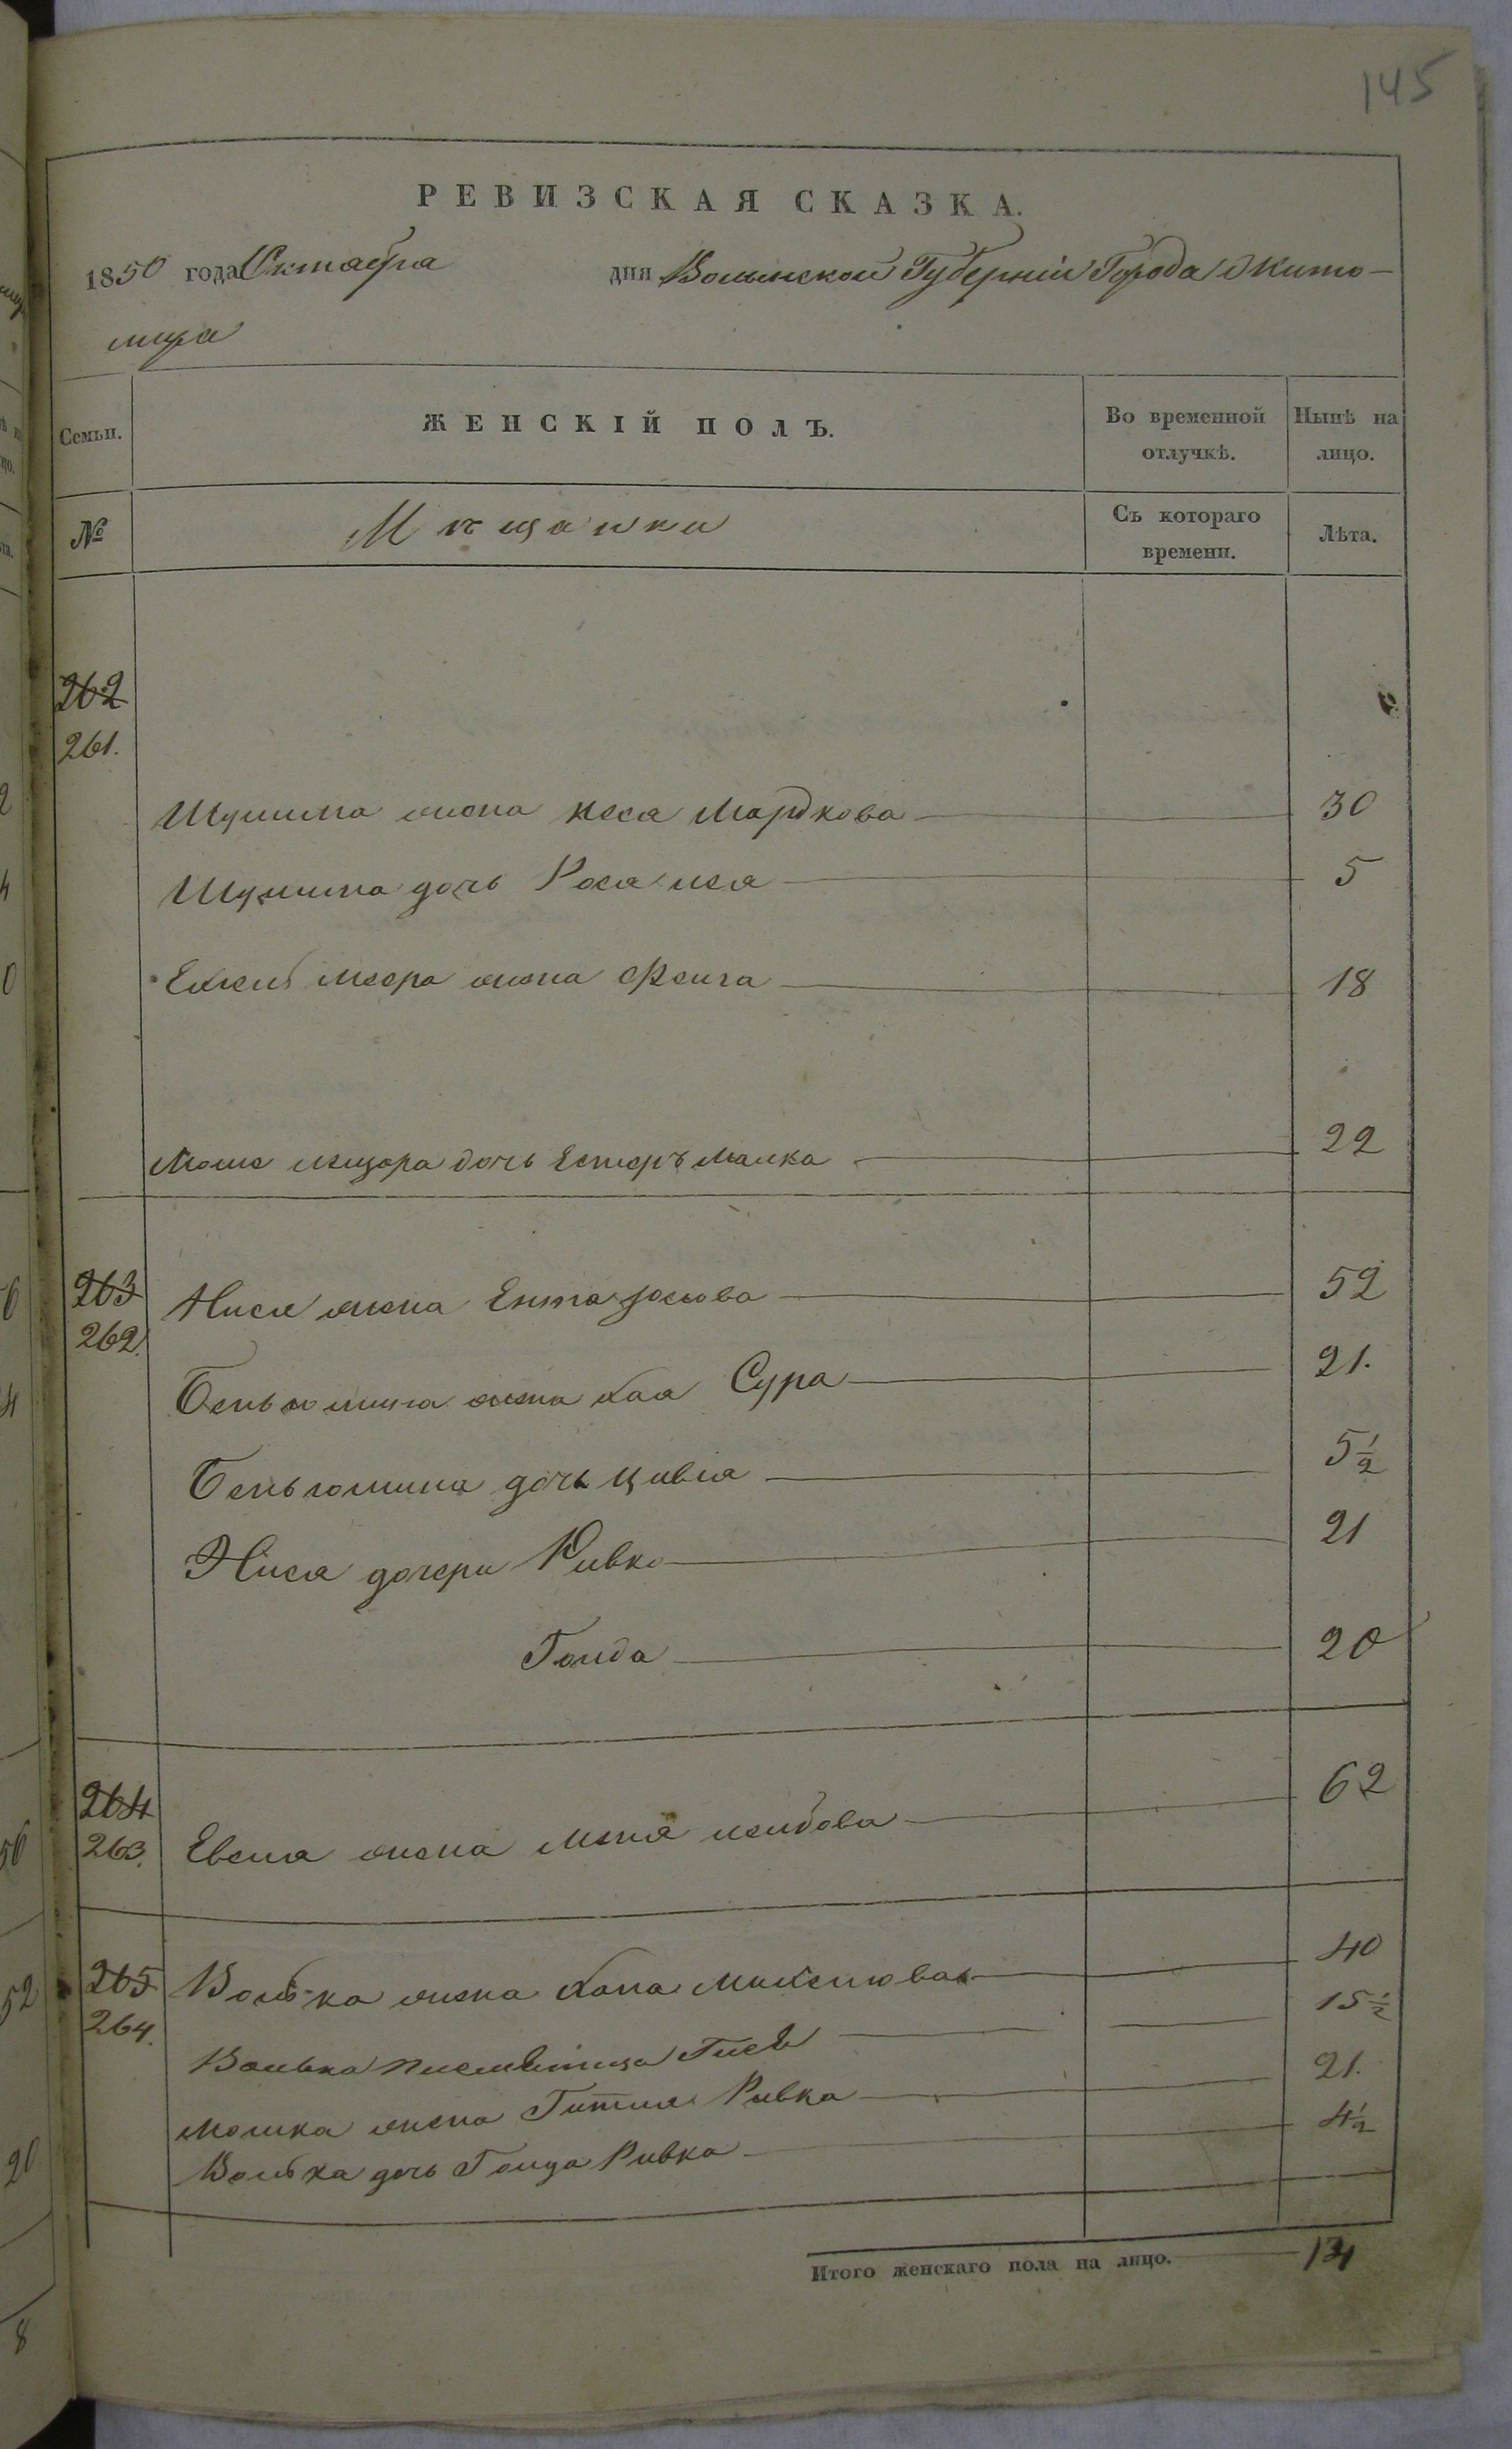 145
РЕВИЗСКАЯ СКАЗКА.
1850 года Октября дня Волынской Губерніи Города Жито-
мира
Семьи. ЖЕНСКІЙ ПОЛЪ. Во временной отлучкѣ. Нынѣ на лицо.
№ Мѣщанки Съ котораго времени. Лѣта.
262
261.
Шулима жена Неся Мардкова 30
Шулима дочь Рося 5
Меера жена Фейга 18
Мошо дочь Естеръ Малка 22
263 Нися жена Ента 52
262.
Беньюмина жена Хая Сура 21.
Беньюмина дочь Цивья 5½
Нися дочери Ривка 21
Голда 20
264 62
263. жена Лейбова
265 Волька жена Хана 40
264.
Волька 15½
Мошка жена Гитля Ривка 21.
Волька дочь Голда Ривка 4½
Итого женскаго пола на лицо. 14